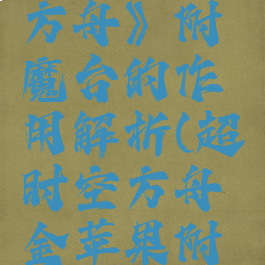 方舟》附
魔台的作
用解析(超
时空方舟
金苹果附